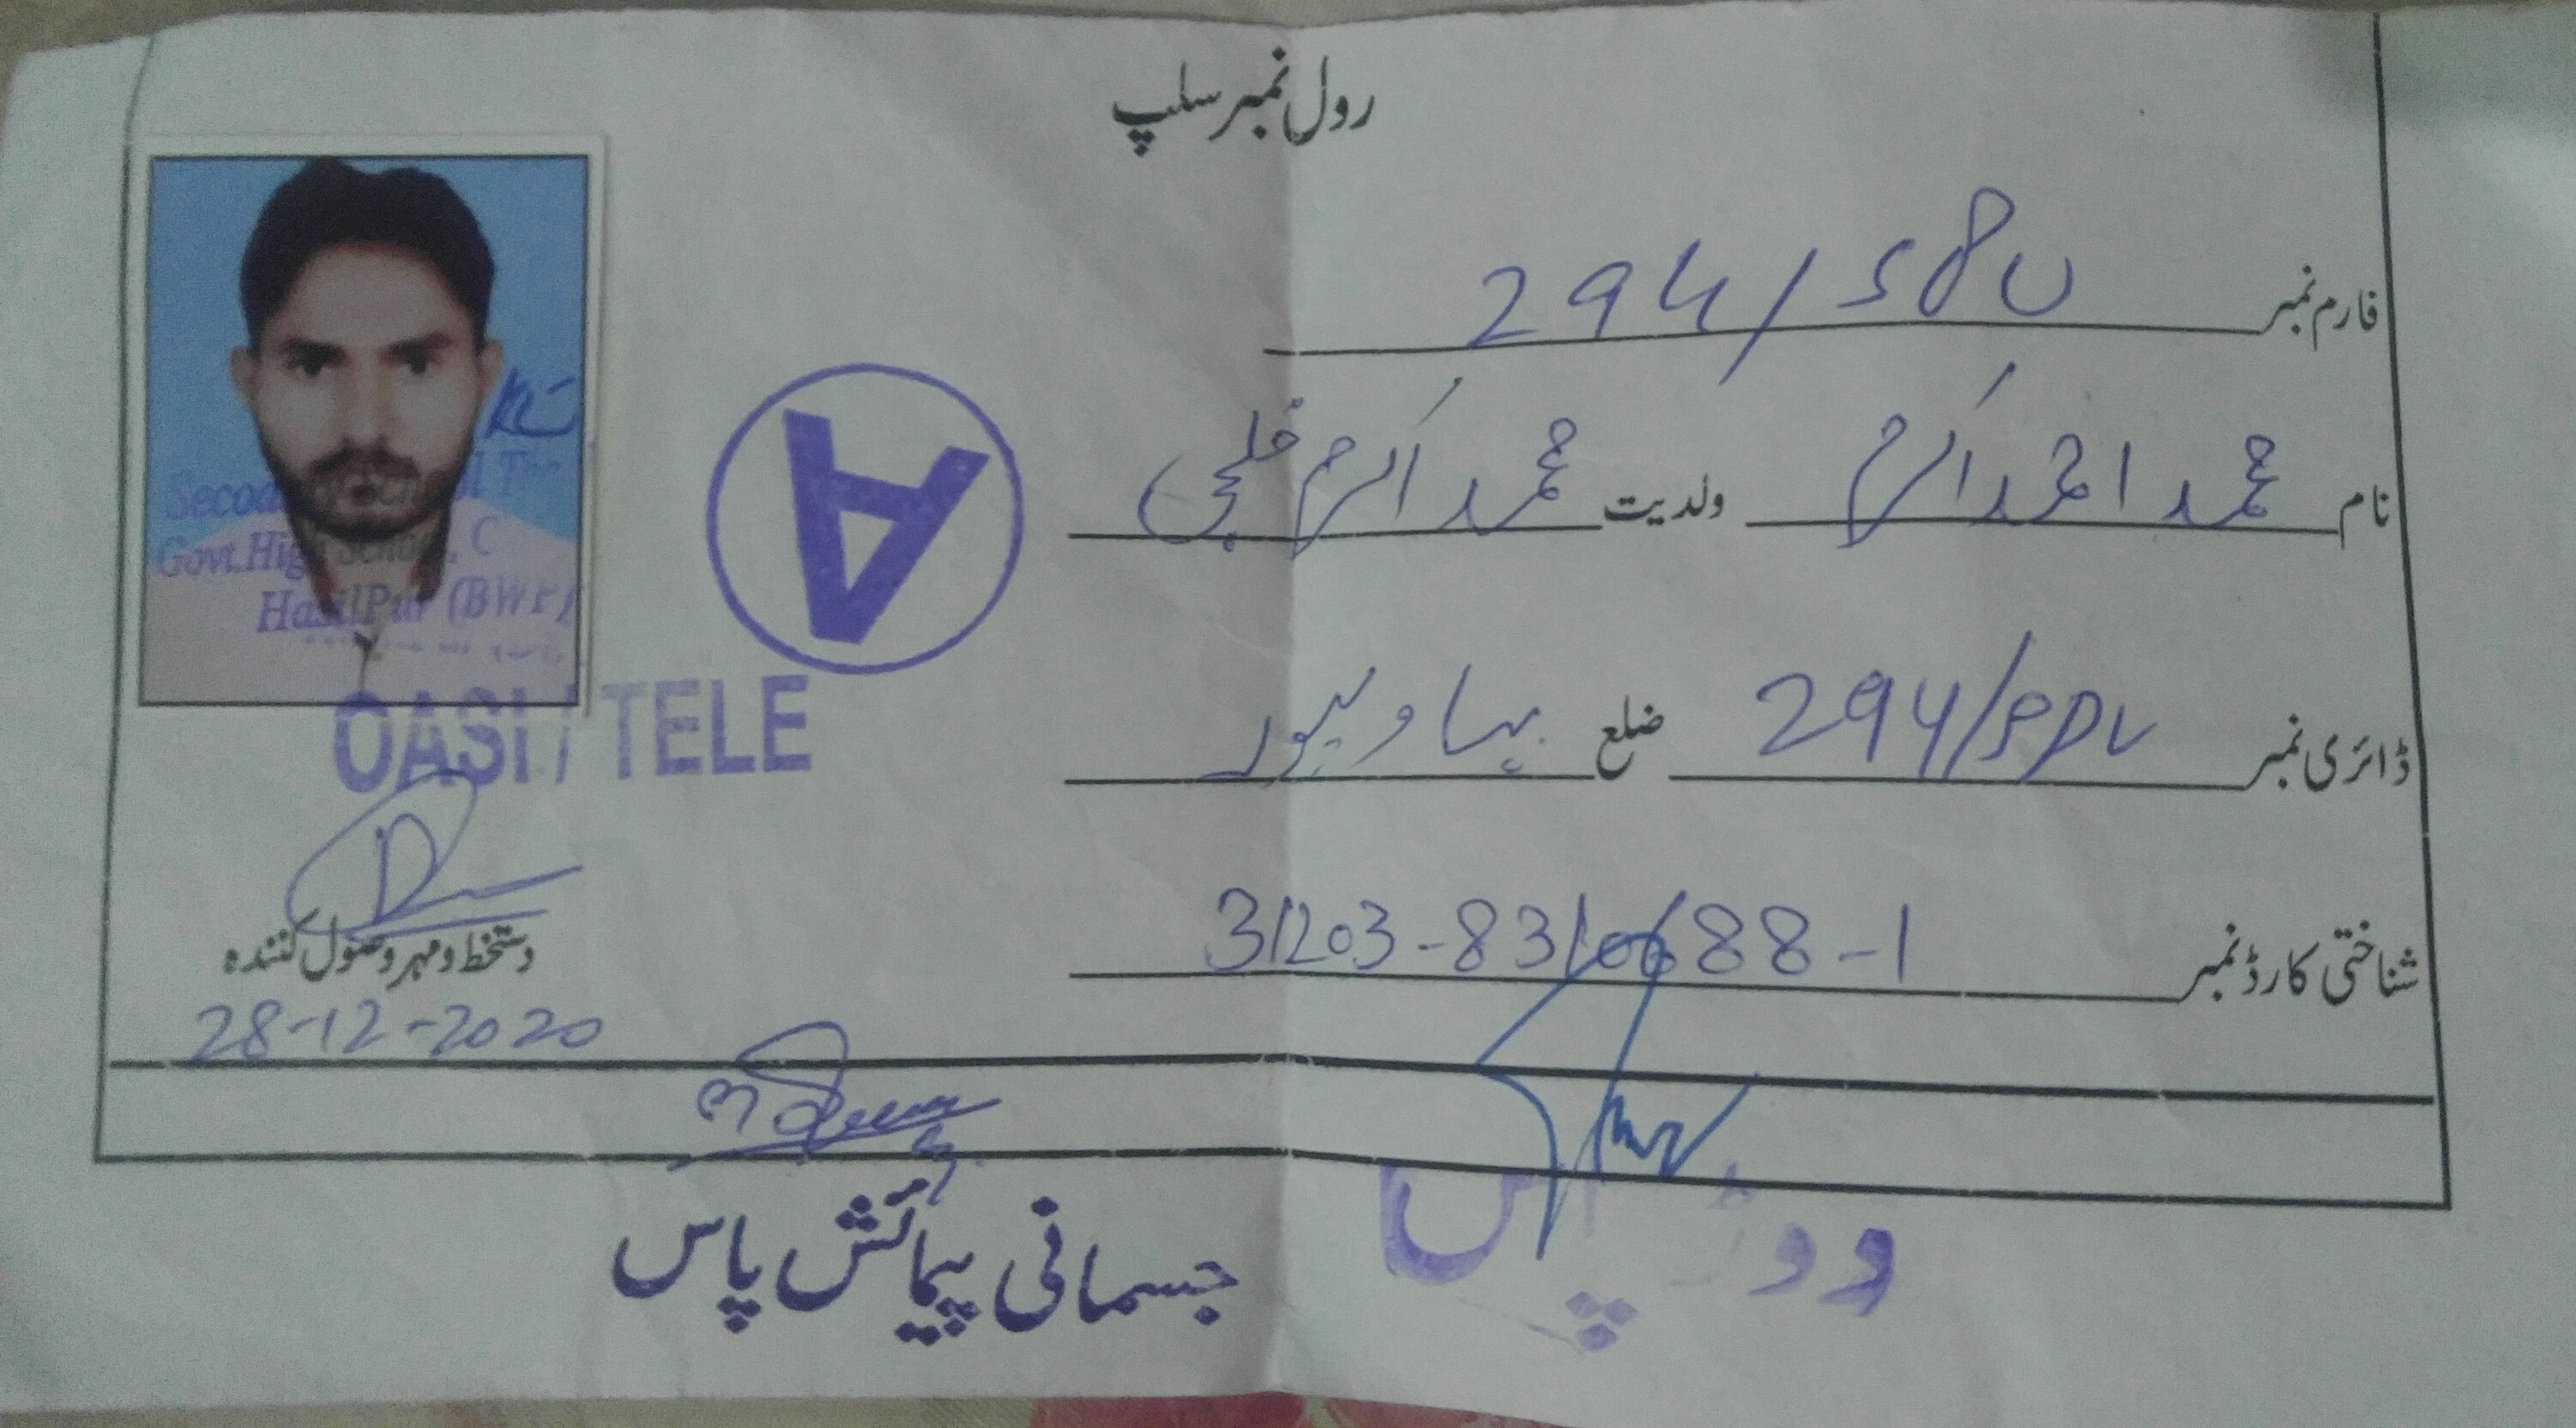 رول نمبر سلپ
فارم نمبر 294/SPU
نام محمد احمد اکرم ولدیت محمد اکرم خلجی
ڈائری نمبر 294/SPU ضلع بہاولپور
شناختی کارڈ نمبر 31203-8310688-1
A
Govt. High School, C
HasilPur (BWP)
TELE
دستخط و مہر وصول کنندہ
28-12-2020
جسمانی پیمائش پاس